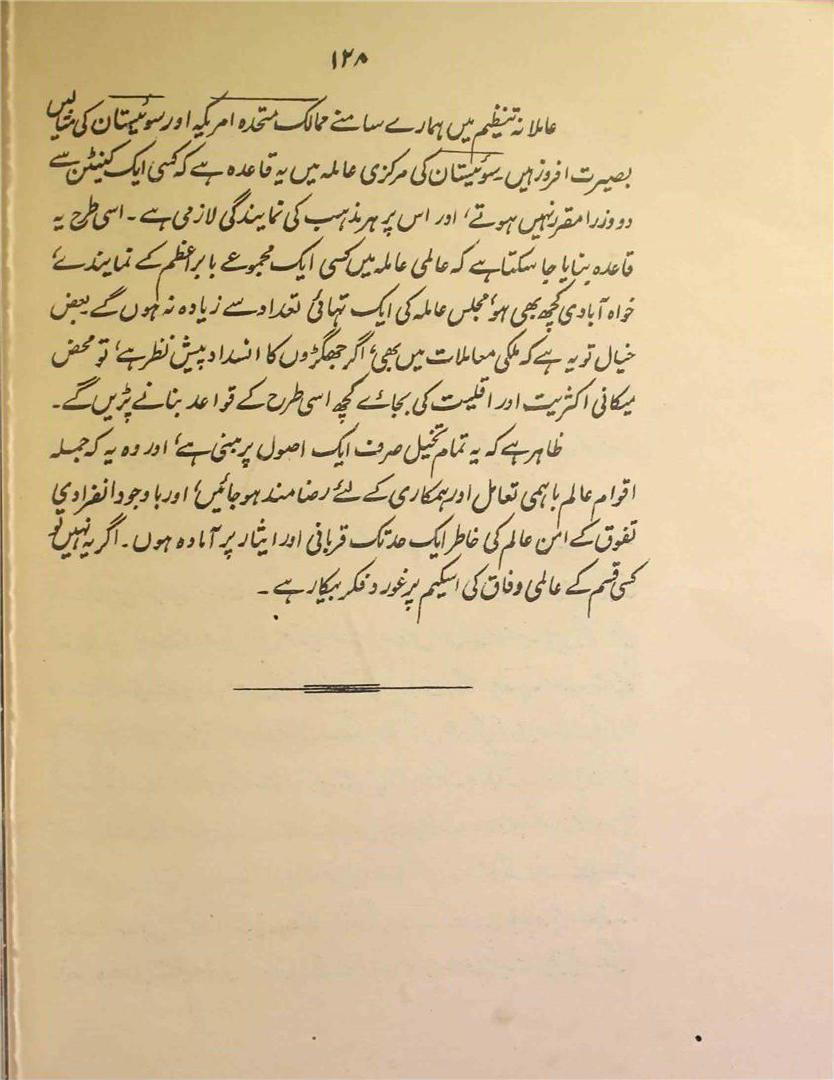 ۱۲۸
عاملانہ تنظیم میں ہمارے سامنے ممالک متحدہ امریکہ اور سوئیستان کی مثالیں
بصیرت افروز ہیں۔ سوئیستان کی مرکزی عاملہ میں یہ قاعدہ ہے کہ کسی ایک کینٹن سے
دو وزرا مقرر نہیں ہوتے، اور اس پر ہر مذہب کی نمایندگی لازمی ہے۔ اسی طرح یہ
قاعدہ بنایا جا سکتا ہے کہ عالمی عاملہ میں کسی ایک مجموعے یا براعظم کے نمایندے،
خواہ آبادی کچھ بھی ہو، مجلس عاملہ کی ایک تہائی تعداد سے زیادہ نہ ہوں گے بعض
خیال تو یہ ہے کہ ملکی معاملات میں بھی، اگر جھگڑوں کا انسداد پیش نظر ہے، تو محض
میکانی اکثریت اور اقلیت کی بجائے کچھ اسی طرح کے قواعد بنانے پڑیں گے۔
ظاہر ہے کہ یہ تمام تخیل صرف ایک اصول پر مبنی ہے، اور وہ یہ کہ جملہ
اقوام عالم باہمی تعامل اور ہمکاری کے لئے رضامند ہو جائیں، اور باوجود انفرادی
تفوق کے امن عالم کی خاطر ایک حد تک قربانی اور ایثار پر آمادہ ہوں۔ اگر یہ نہیں تو
کسی قسم کے عالمی وفاق کی اسکیم پر غور و فکر بیکار ہے۔